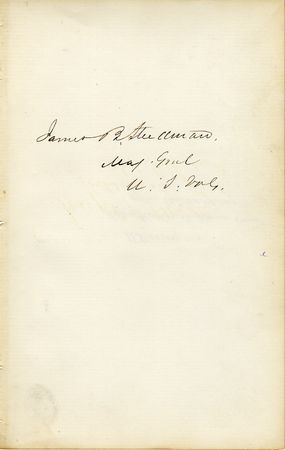 James B. Steedman,
Maj. Genl
U. S. Vols.